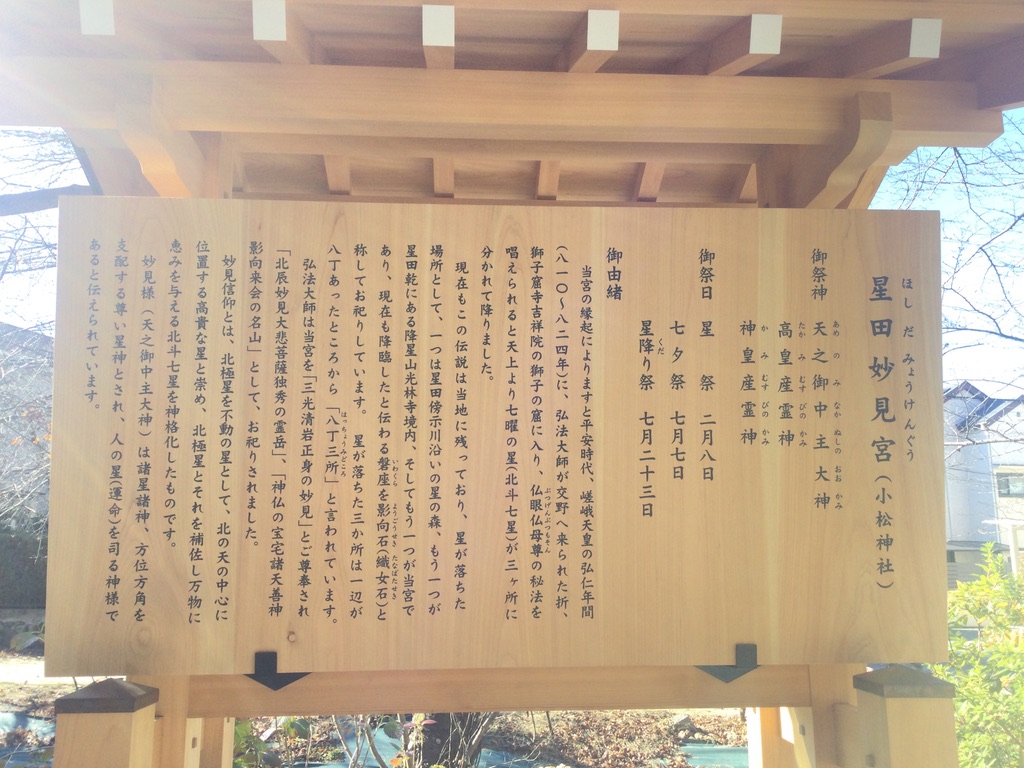 ほしだみょうけんぐう
星田妙見宮(小松神社)
御祭神 天之御中主大神
あめのみなかぬしのおおかみ
高皇産霊神
たかみむすびのかみ
神皇産霊神
かみむすびのかみ
御祭日 星祭 二月八日
七夕祭 七月七日
星降り祭 七月二十三日
くだ
御由緒
当宮の縁起によりますと平安時代、嵯峨天皇の弘仁年間
(八一〇〜八二四年)に、弘法大師が交野へ来られた折、
獅子窟寺吉祥院の獅子の窟に入り、仏眼仏母尊の秘法を
ぶつげんぶつもそん
唱えられると天上より七曜の星(北斗七星)が三ヶ所に
分かれて降りました。
現在もこの伝説は当地に残っており、星が落ちた
場所として、一つは星田傍示川沿いの星の森、もう一つが
星田乾にある降星山光林寺境内、そしてもう一つが当宮で
あり、現在も降臨したと伝わる磐座を影向石(織女石)と
いわくら ようごうせき たなばたせき
称してお祀りしています。 星が落ちた三か所は一辺が
八丁あったところから「八丁三所」と言われています。
はっちょうみどころ
弘法大師は当宮を「三光清岩正身の妙見」とご尊奉され
「北辰妙見大悲菩薩独秀の霊岳」、「神仏の宝宅諸天善神
影向来会の名山」として、お祀りされました。
妙見信仰とは、北極星を不動の星として、北の天の中心に
位置する高貴な星と崇め、北極星とそれを補佐し万物に
恵みを与える北斗七星を神格化したものです。
妙見様(天之御中主大神)は諸星諸神、方位方角を
支配する尊い星神とされ、人の星(運命)を司る神様で
あると伝えられています。